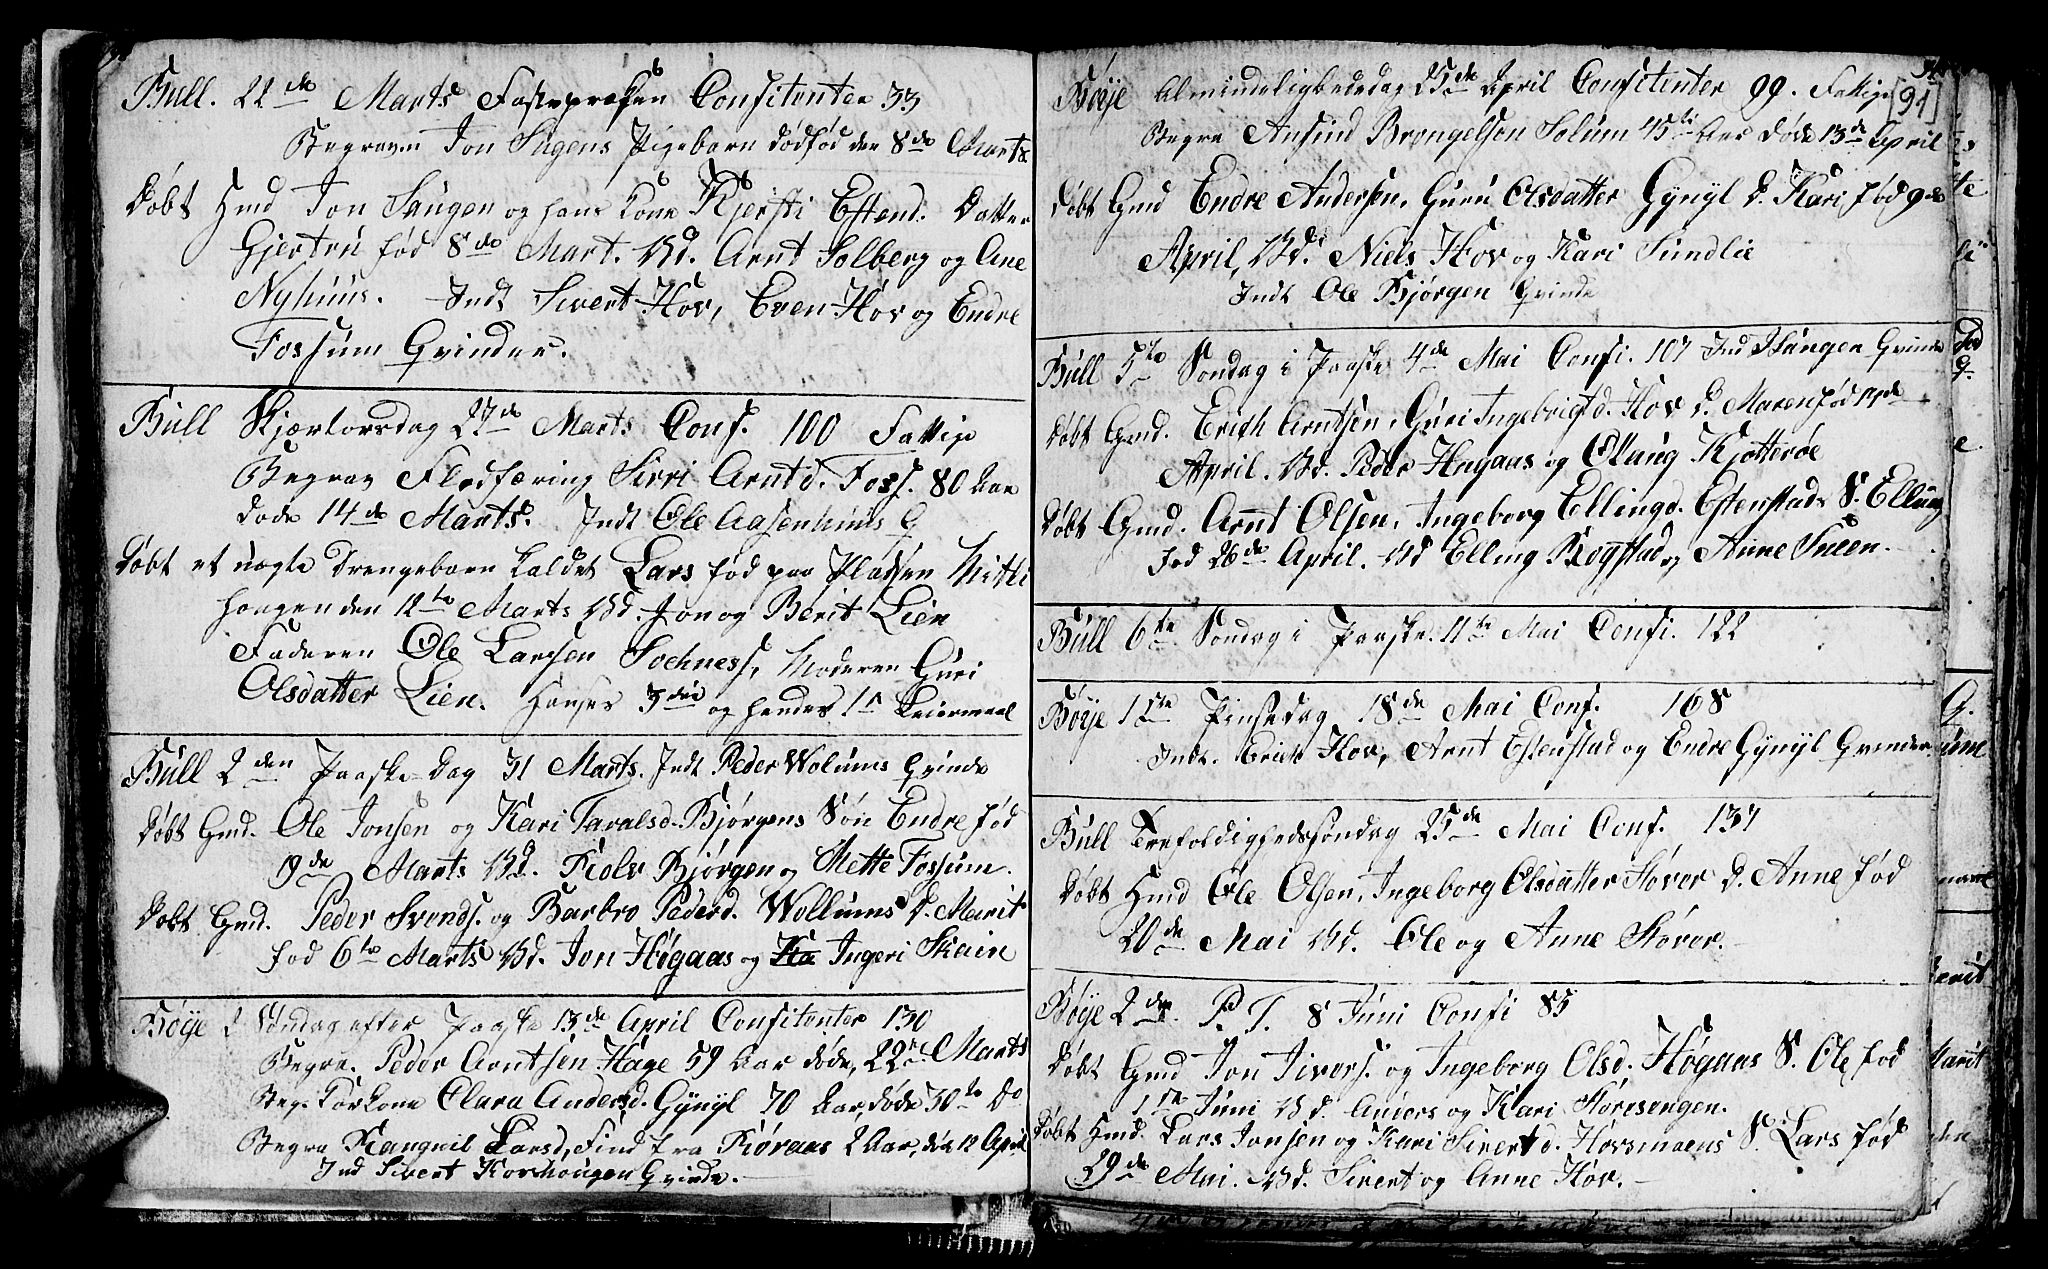 Bull. 22de Marts Fastepræken Confitenter 33
Begraven Jon Sugens Pigebarn dødfød den 8de Marts
Døbt Hmd Jon Saugen og hans Kone Kjersti Estend. Datter
Gjertru fød 8de Mart. Bd. Arnt Solberg og Ane
Nyhuus. Indt Sivert Hov, Even Hov og Endre
Fossum Qvinder.
Bull Skjærtorsdag 27de Marts Conf. 100 Fattige
Begrav Flodfæring Sirri Arntd. Foss. 80 Aar
døde 14de Marts. Indt Ole Aasenhuus Q
Døbt et uægte Drengebarn kaldet Lars fød paa Pladsen
haugen den 12te Marts Bd. Jon og Berit Lien
Faderen Ole Larsen Sochness, Moderen Guri
Olsdatter Lien. Hanses 3die og hendes 1te Leiermaal
Bull 2den Paaske-Dag 31 Marts. Indt Peder Wolums Qvinde
Døbt Gmd. Ole Jonsen og Kari Taralsd. Bjørgens Søn Endre fød
19de Marts Bd. Kolv Bjørgen og Mette Fossum.
Døbt Gmd. Peder Svends. og Barbro Pederd. Wollums D. Marit
fød 6te Marts Bd. Jon Høgaas og Ka Ingeri Skain
Bøye 2 Søndag efter Paaske 13de April Confitenter 130
Begra. Peder Arntsen Hage 59 Aar døde 22de Marts
Beg. Karkone Clara Andersd. Gynyl 70 Aar, døde 30te Do
Begra Rangnil Larsd, Find fra Røraas 2 Aar, død 12 April
Ind Sivert Korshougen Qvinde.
Bøye Almindeligbededag 25de April Confitenter 99. Fattige
[91]
Begra Amund Brongelson Solum 45ti Aar døde 13de April
Døbt Gmd Endre Andersen, Guru Olsdatter Gynyl D. Kari fød 9de
April, Bd. Niels Hov og Kari Sundlie
Indt Ole Bjørgen Qvinde
Bull 5te Søndag i Paaske 4de Mai Confi. 107 Ind Haugen Qvinde
Døbt Gmd. Erich Arntsen, Guri Ingebrigtd. Hov D. Maren fød 19de
April. Bd. Peder Hagaas og Olaug Kjøtterøe
Døbt Gmd. Arnt Olsen, Ingeborg Ellingd. Estenstads S. Elling
Fød 26de April. Bd Elling Rogstad og Anne Sneen.
Bull 6te Søndag i Paaske. 11te Mai Confi. 122
Bøye 1ste Pinsedag 18de Mai Conf. 168
Indt. Erich Hov, Arnt Estenstad og Endre Gynyl Qvinder
Bull Trefoldighedssøndag 25de Mai Conf. 137
Døbt Hmd Ole Olsen, Ingeborg Olsdatter Støvor D. Anne fød
20de Mai Bd. Ole og Anne Støvor.
Bøye 2den P. T. 8 Juni Confi 85
Døbt Gmd Jon Ivers. og Ingeborg Olsd. Høgaas S. Ole fød
1ste Juni Bd. Anders og Kari Støresengen.
Døbt Hmd. Lars Jonsen og Kari Sivertd. Hovsmoens S. Lars fød
29de Mai. Bd. Sivert og Anne Hov.